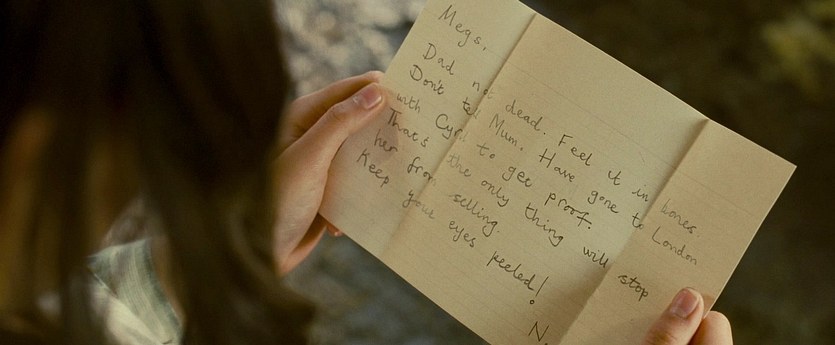 Megs,
Dad not dead. Feel it in bones.
Don't tell Mum. Have gone to London
with Cyril to get proof.
That's the only thing will stop
her from selling.
Keep your eyes peeled!
N.